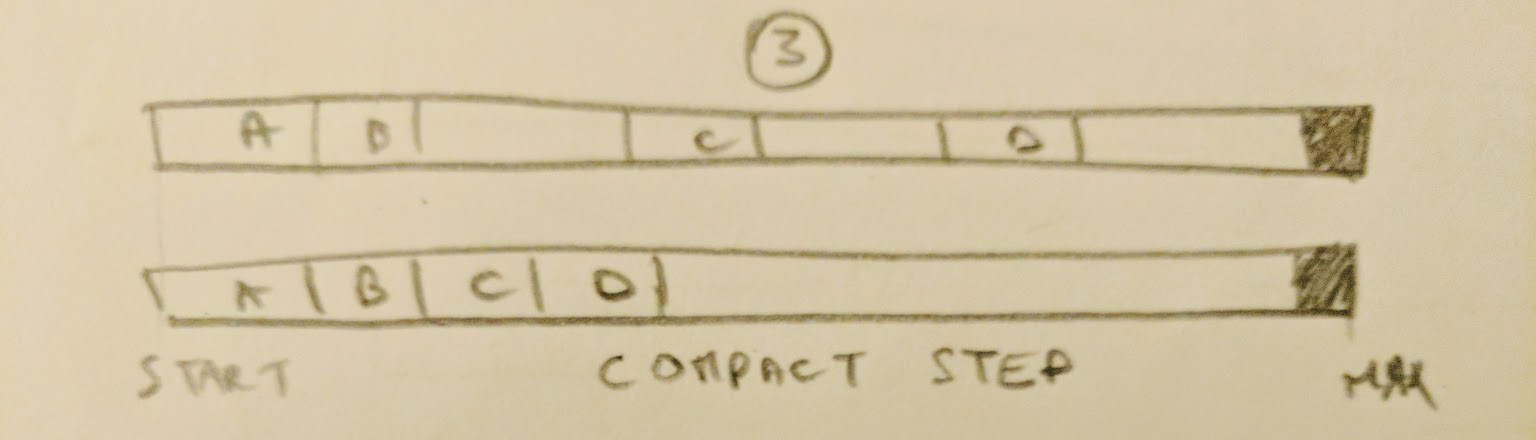 3
A B C D
A B C D
START COMPACT STEP